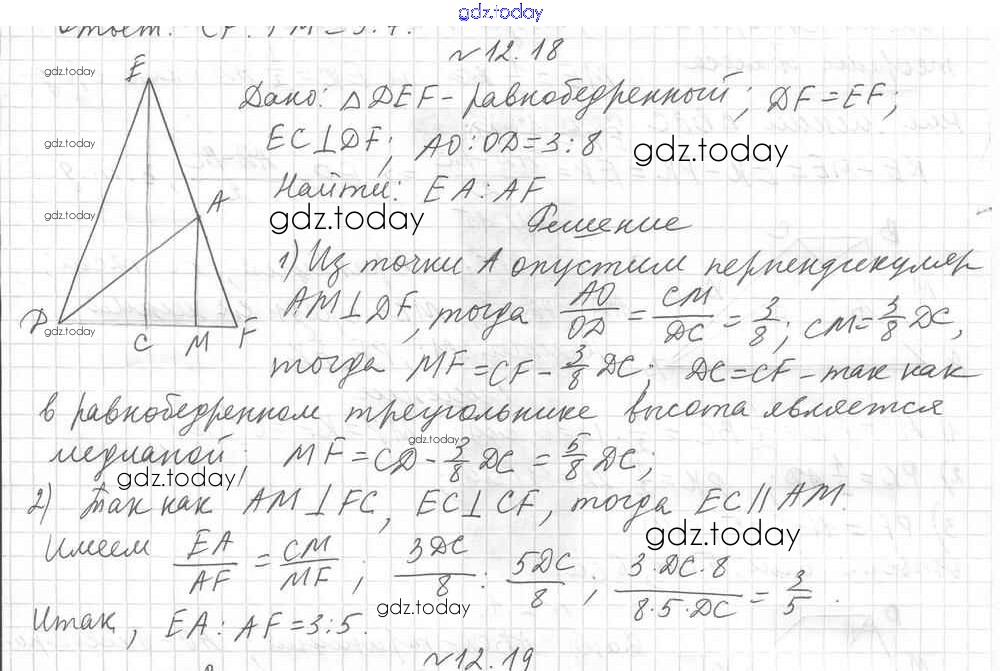 gdz.today
Ответ: CF : FM = 5:4.
№12.18
gdz.today
E
Дано: △DEF - равнобедренный; DF = EF;
gdz.today
EC⊥DF; AO:OD=3:8
gdz.today
Найти: EA:AF
A
gdz.today
gdz.today
Решение
1) Из точки A опустим перпендикуляр
gdz.today
AM⊥DF, тогда AO/OD = CM/DC = 3/8; CM = 3/8 DC,
D
gdz.today
C M F
тогда MF = CF - 3/8 DC; DC=CF - так как
в равнобедренном треугольнике высота является
gdz.today
медианой: MF = CD - 3/8 DC = 5/8 DC;
gdz.today
2) Так как AM⊥FC, EC⊥CF, тогда EC∥AM.
gdz.today
Имеем EA/AF = CM/MF; 3DC/8 : 5DC/8; 3·DC·8/8·5·DC = 3/5.
gdz.today
Итак, EA:AF=3:5.
№12.19